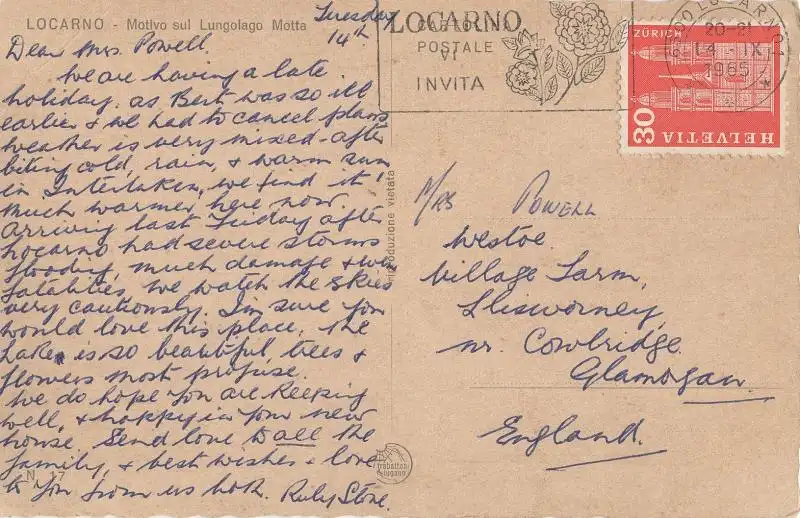 LOCARNO - Motivo sul Lungolago Motta
Tuesday
14th
Dear Mrs. Powell,
We are having a late
holiday. as Bert was so ill
earlier & we had to cancel plans
weather is very mixed - after
biting cold, rain, & warm sun
in Interlaken, we find it
much warmer here now.
arriving last Friday after
Locarno had severe storms
flooding, much damage &
fatalities, we watch the skies
very cautiously. I'm sure you
would love this place, the
Lake is so beautiful, trees &
flowers most profuse.
We do hope you are keeping
well, & happy in your new
house. Send love to all the
family, & best wishes & love
to you from us both. Ruby Stone.
N. 17
riproduzione vietata
trabattoni
lugano
LOCARNO
CASTOLINA
POSTALE
VI
INVITA
LOCARNO
20-21
14. IX.
1965
ZÜRICH
30
HELVETIA
Mrs Powell
Westoe
Village Farm,
Llisworney,
nr. Cowbridge.
Glamorgan.
England.